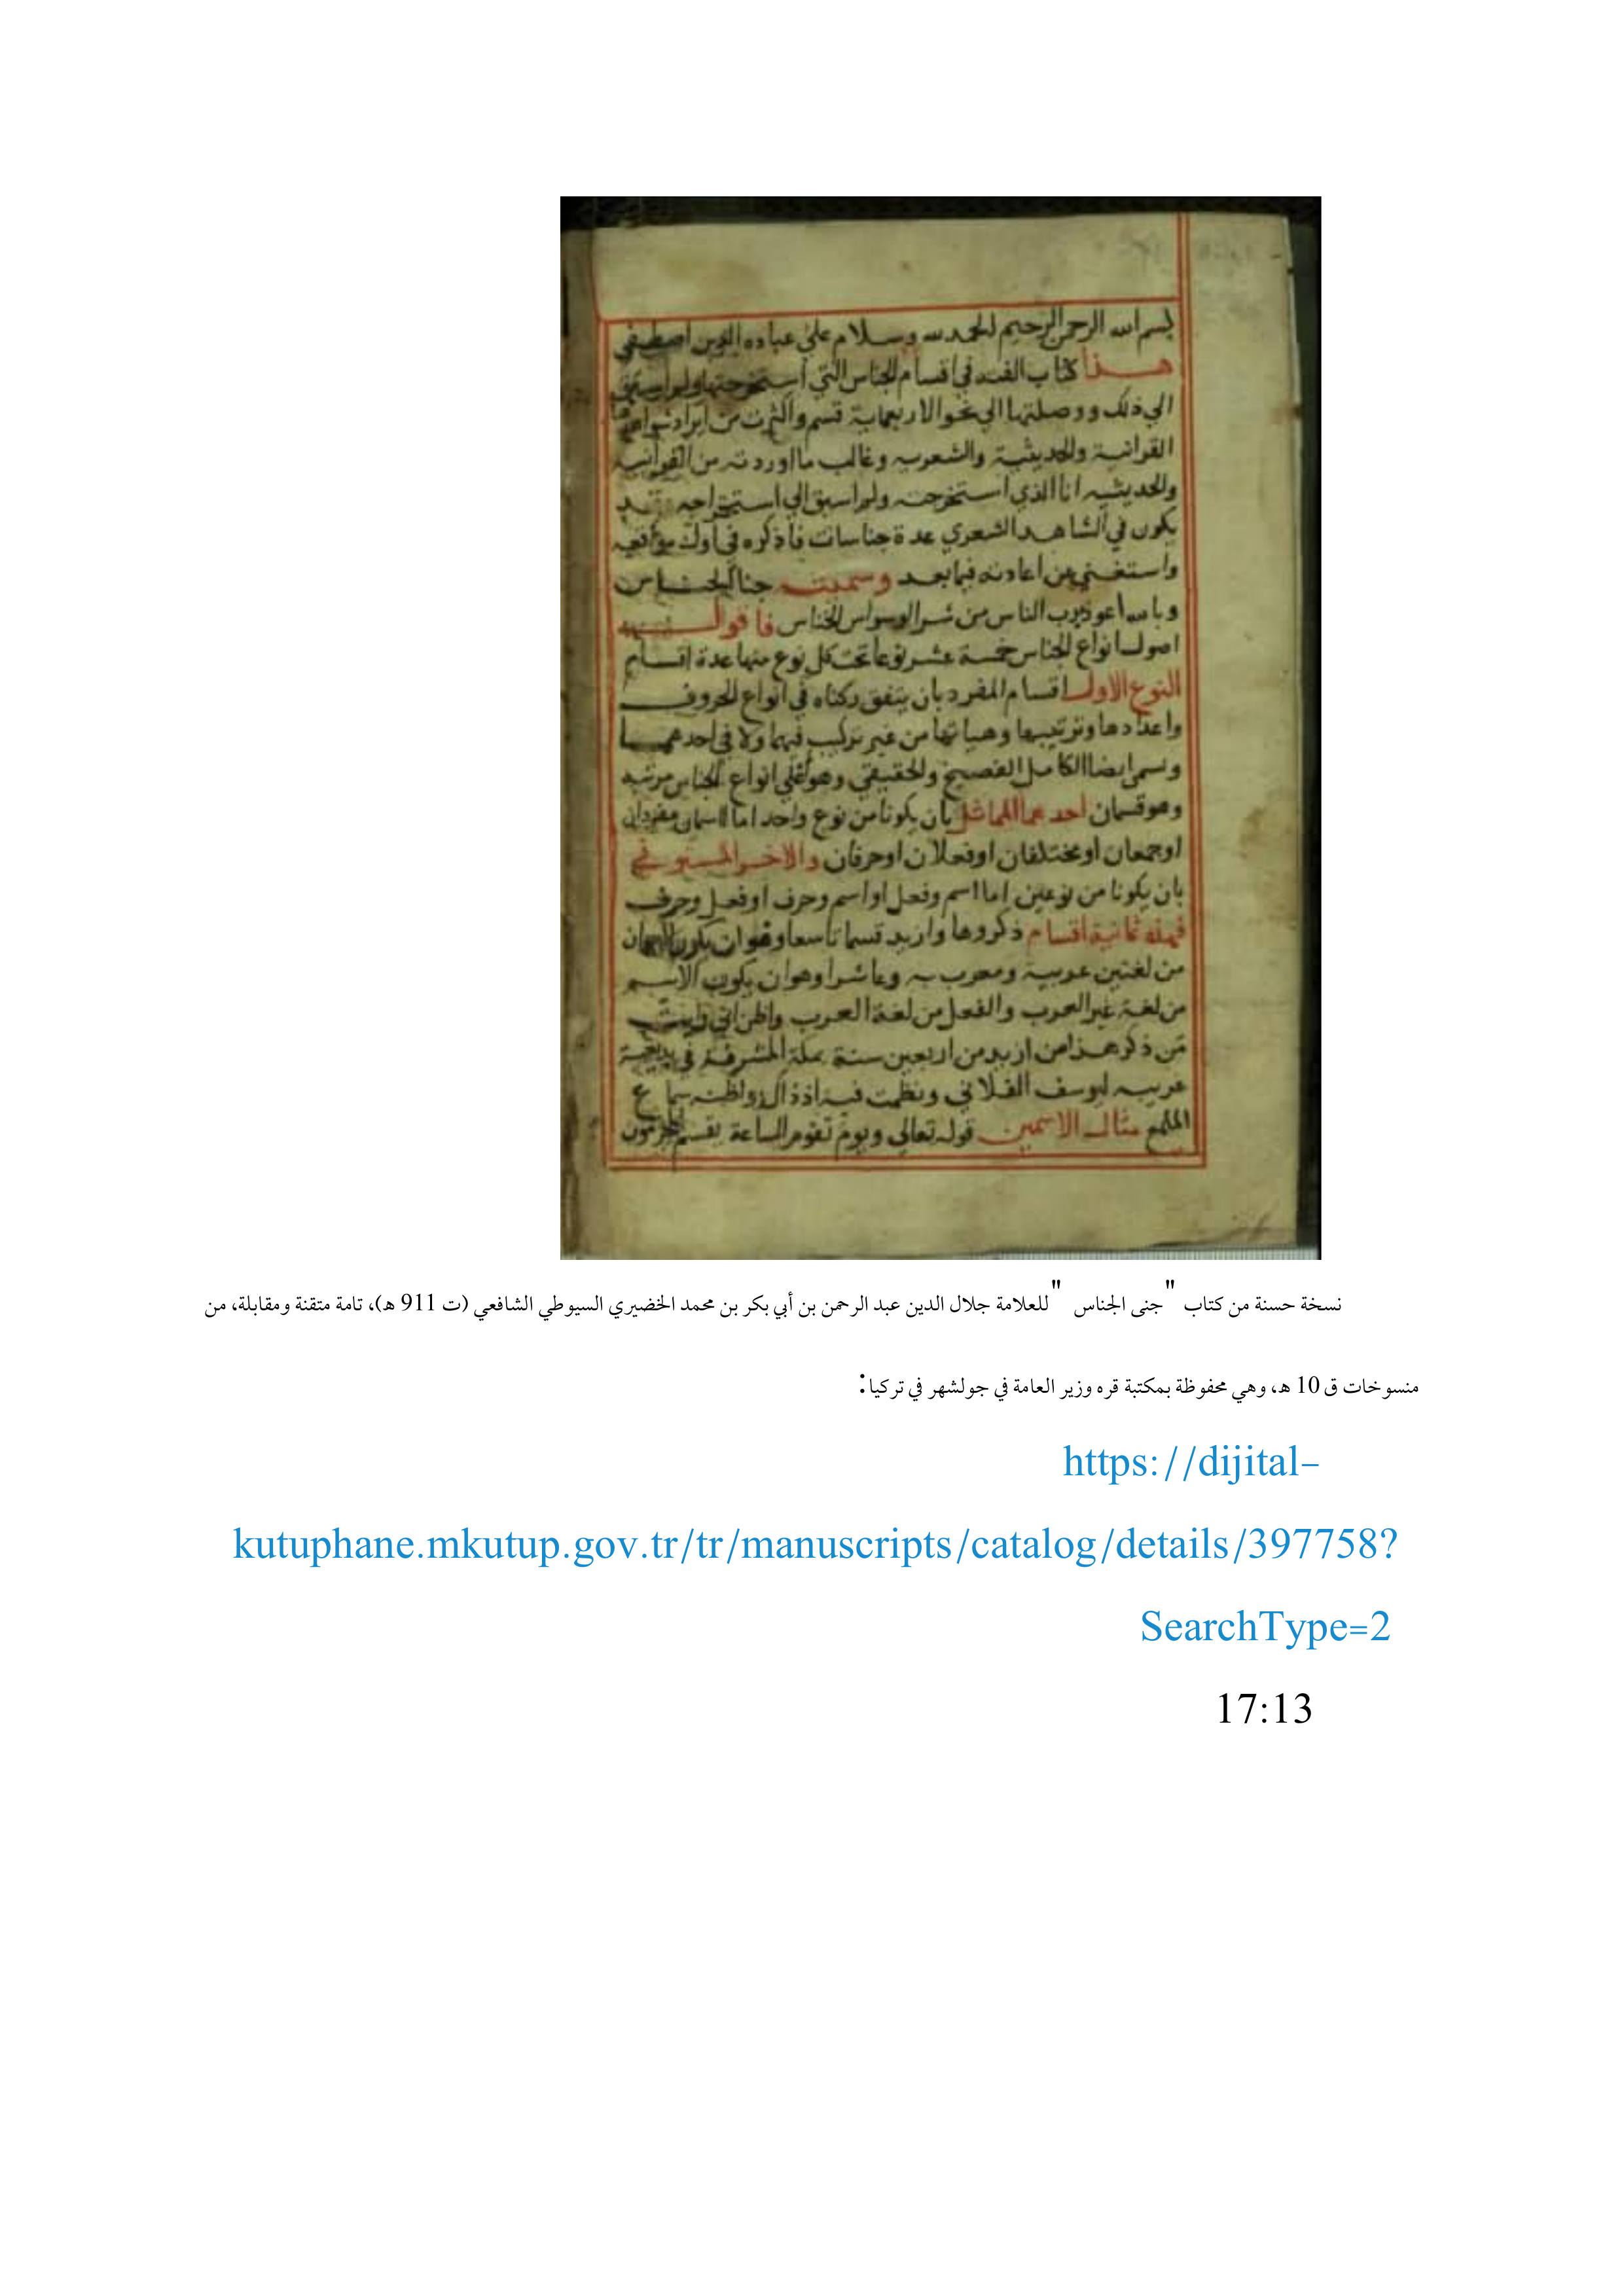 بسم الله الرحمن الرحيم الحمد لله وسلام على عباده الذين اصطفى
هذا كتاب الفته في اقسام الجناس التي استخرجتها ولم اسبق
الي ذلك ووصلتها الي نحو الاربعماية قسم واكثرت من ايراد شواهدها
القرانية والحديثية والشعريه وغالب ما اوردته من القرانيه
والحديثيه انا الذي استخرجته ولم اسبق الي استخراجه وقد
يكون في الشاهد الشعري عدة جناسات فاذكره في اول مواقعه
واستغني عن اعادته فيما بعد وسميته جنا الجناس
وبالله اعوذ رب الناس من شر الوسواس الخناس فاقول
اصول انواع الجناس خمسة عشر نوعا تحت كل نوع منها عدة اقسام
النوع الاول اقسام المفرد بان يتفق ركناه في انواع الحروف
واعدادها وترتيبها وهياتها من غير تركيب فيهما ولا في احدهما
وسمي ايضا الكامل الفصيح والحقيقي وهو اعلي انواع الجناس مرتبه
وهو قسمان احدهما المماثل بان يكونا من نوع واحد اما اسمان مفردان
او جمعان او مختلفان او فعلان او حرفان والاخر المستوفي
بان يكونا من نوعين اما اسم وفعل او اسم وحرف او فعل وحرف
فهذه ثمانية اقسام ذكروها وازيد قسما تاسعا وهو ان يكون الاسمان
من لغتين عربية ومعربه وعاشرا وهو ان يكون الاسم
من لغة غير العرب والفعل من لغة العرب واظن اني رايت
من ذكر هذا من ازيد من اربعين سنة بمكة المشرفة في بديعية
غريبه ليوسف ونظمت فيه اذ ذاك واظنه سماع
الملمع مثال الاسمين قوله تعالي ويوم تقوم الساعة يقسم المجرمون
نسخة حسنة من كتاب "جنى الجناس" للعلامة جلال الدين عبد الرحمن بن أبي بكر بن محمد الخضيري السيوطي الشافعي (ت 911 هـ)، تامة متقنة ومقابلة، من
منسوخات ق 10 هـ، وهي محفوظة بمكتبة قره وزير العامة في جولشهر في تركيا:
https://dijital-
kutuphane.mkutup.gov.tr/tr/manuscripts/catalog/details/397758?
SearchType=2
17:13